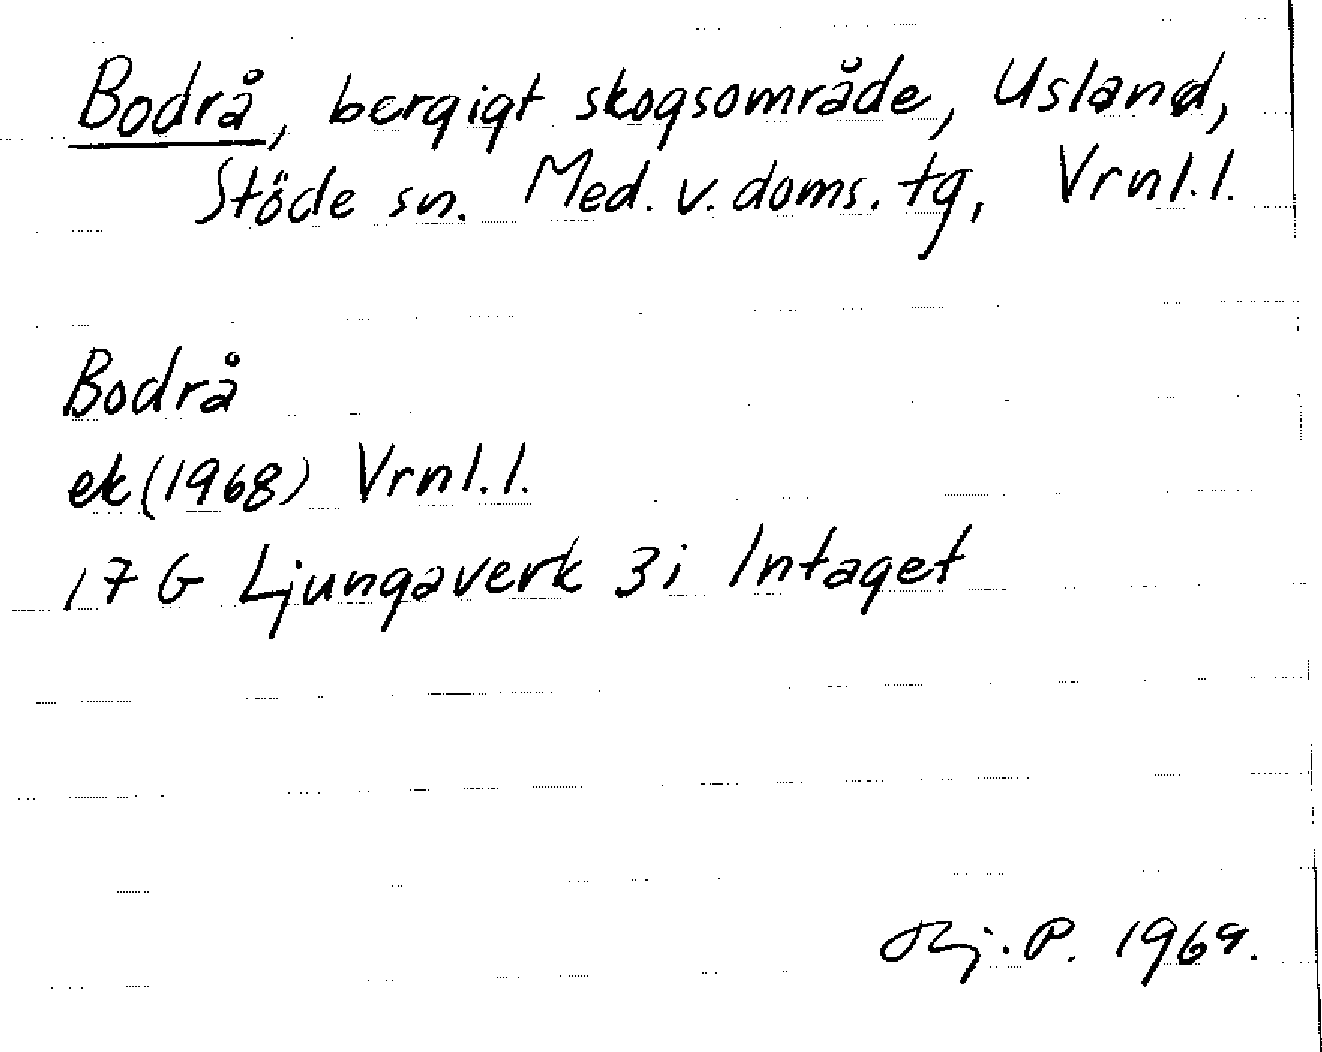 Bodrå, bergigt skogsområde, Usland,
Stöde sn. Med. v. doms. tg, Vrnl. l.
Bodrå
ek (1968) Vrnl. l.
17 G Ljungaverk 3i Intaget
P. 1969.